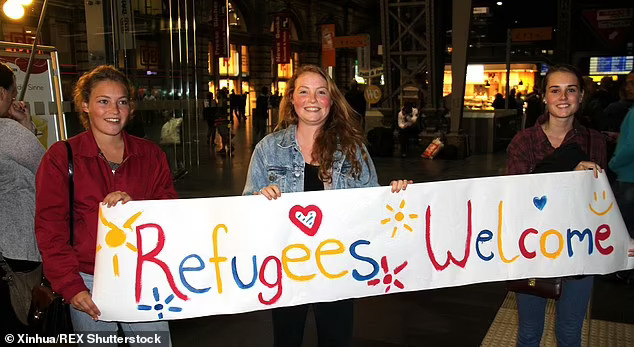 Refugees Welcome
© Xinhua/REX Shutterstock